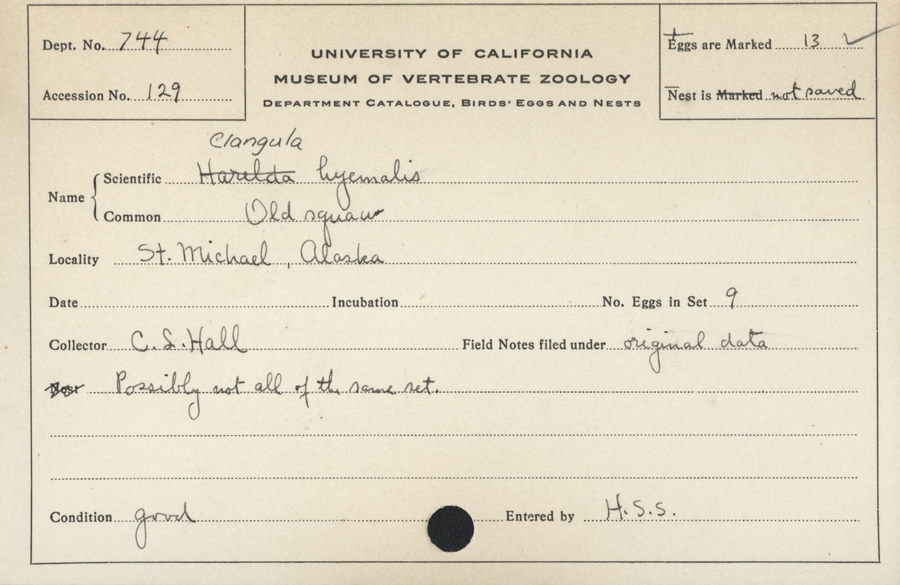 Dept. No. 744
Accession No. 129
UNIVERSITY OF CALIFORNIA
MUSEUM OF VERTEBRATE ZOOLOGY
DEPARTMENT CATALOGUE, BIRDS' EGGS AND NESTS
Eggs are Marked 13 ✓
Nest is Marked not saved
Clangula
Name
Scientific Harelda hyemalis
Common Old squaw
Locality St. Michael, Alaska
Date Incubation No. Eggs in Set 9
Collector C. S. Hall Field Notes filed under original data
Nest Possibly not all of the same set.
Condition good Entered by H.S.S.